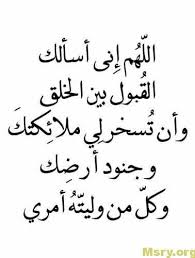 اللّهُم إنى أسألك
القُبول بين الخلق
وأن تُسخر لي ملائكتكَ
و جنود أرضِك
وكلّ من وليتّهُ أمري
Msry.org